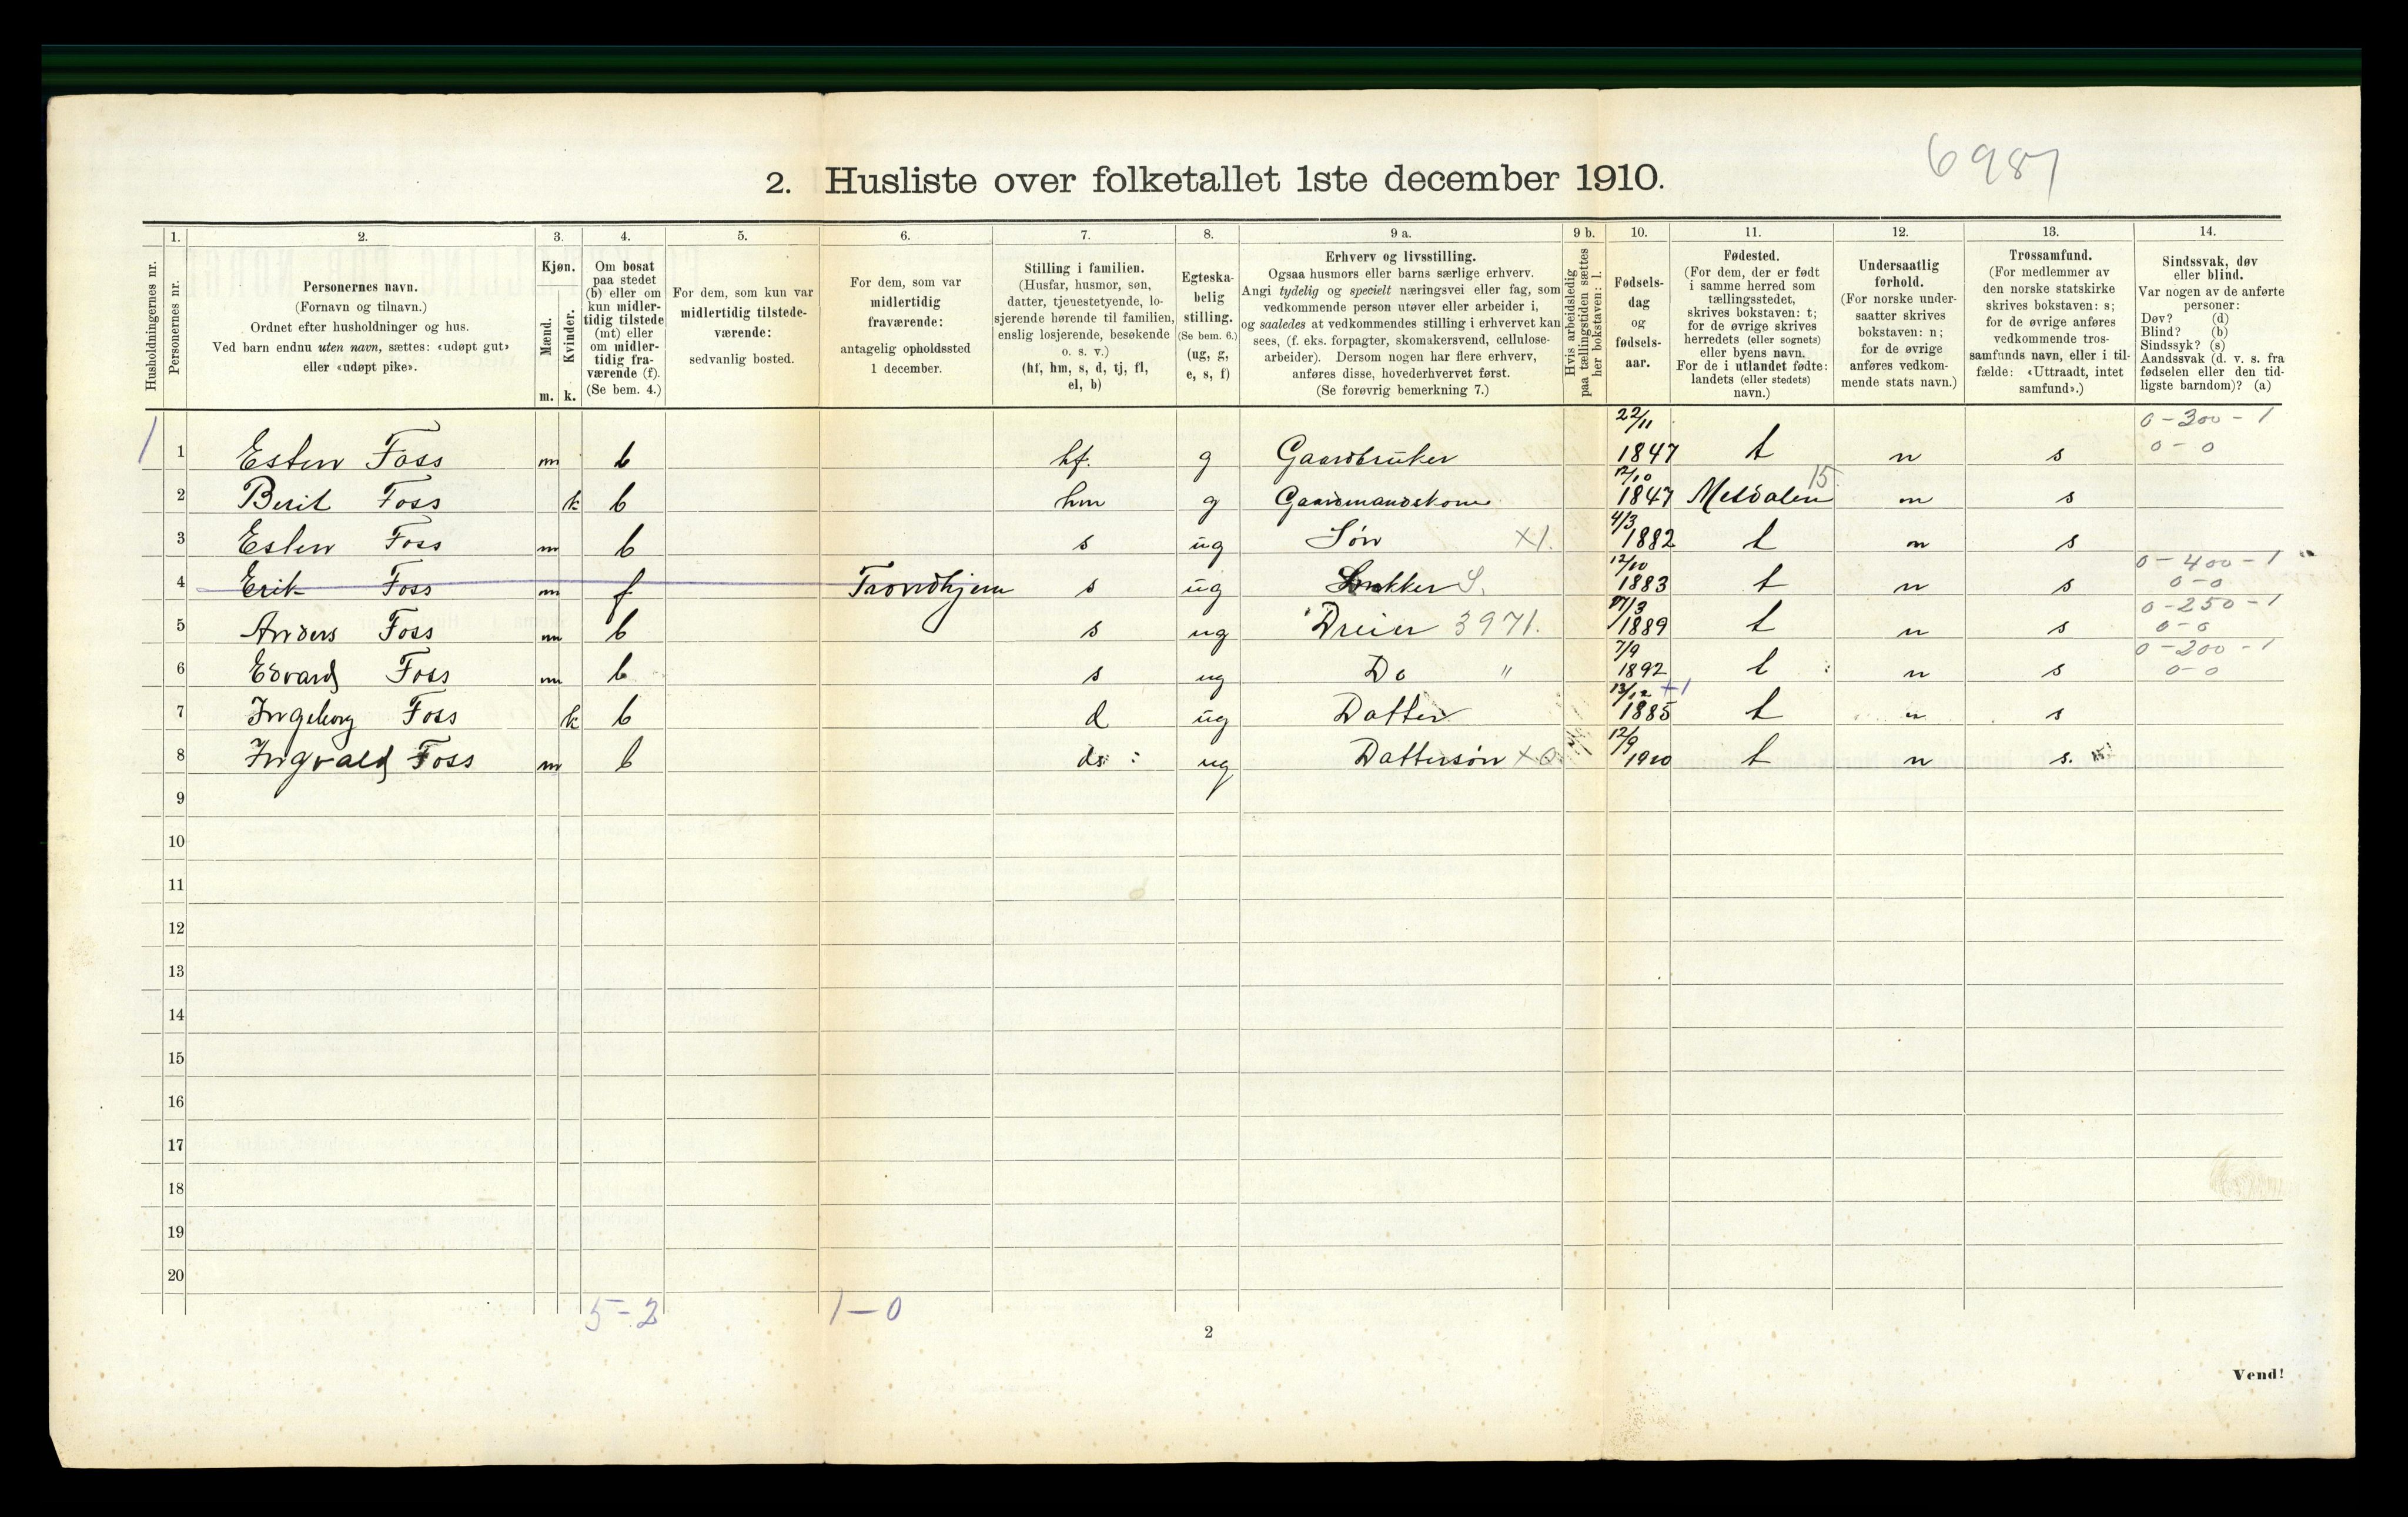 6987
2. Husliste over folketallet 1ste december 1910.
Husholdningernes nr.
1.
Personernes nr.
2.
Personernes navn.
(Fornavn og tilnavn.)
Ordnet efter husholdninger og hus.
Ved barn endnu uten navn, sættes: «udøpt gut»
eller «udøpt pike».
3.
Kjøn.
Mænd.
Kvinder.
m. k.
4.
Om bosat
paa stedet
(b) eller om
kun midler-
tidig tilstede
(mt) eller
om midler-
tidig fra-
værende (f).
(Se bem. 4.)
5.
For dem, som kun var
midlertidig tilstede-
værende:
sedvanlig bosted.
6.
For dem, som var
midlertidig
fraværende:
antagelig opholdssted
1 december.
7.
Stilling i familien.
(Husfar, husmor, søn,
datter, tjenestetyende, lo-
sjerende hørende til familien,
enslig losjerende, besøkende
o. s. v.)
(hf, hm, s, d, tj, fl,
el, b)
8.
Egteska-
belig
stilling.
(Se bem. 6.)
(ug, g,
e, s, f)
9 a.
Erhverv og livsstilling.
Ogsaa husmors eller barns særlige erhverv.
Angi tydelig og specielt næringsvei eller fag, som
vedkommende person utøver eller arbeider i,
og saaledes at vedkommendes stilling i erhvervet kan
sees, (f. eks. forpagter, skomakersvend, cellulose-
arbeider). Dersom nogen har flere erhverv,
anføres disse, hovederhvervet først.
(Se forøvrig bemerkning 7.)
9 b.
Hvis arbeidsledig
paa tællingstiden sættes
her bokstaven: l.
10.
Fødsels-
dag
og
fødsels-
aar.
11.
Fødested.
(For dem, der er født
i samme herred som
tællingsstedet,
skrives bokstaven: t;
for de øvrige skrives
herredets (eller sognets)
eller byens navn.
For de i utlandet fødte:
landets (eller stedets)
navn.)
12.
Undersaatlig
forhold.
(For norske under-
saatter skrives
bokstaven: n;
for de øvrige
anføres vedkom-
mende stats navn.)
13.
Trossamfund.
(For medlemmer av
den norske statskirke
skrives bokstaven: s;
for de øvrige anføres
vedkommende tros-
samfunds navn, eller i til-
fælde: «Uttraadt, intet
samfund».)
14.
Sindssvak, døv
eller blind.
Var nogen av de anførte
personer:
Døv? (d)
Blind? (b)
Sindssyk? (s)
Aandssvak (d. v. s. fra
fødselen eller den tid-
ligste barndom)? (a)
1 1 Esten Foss m b hf. g Gaardbruker 22/11 1847 t n s 0-300-1 0-0
2 Berit Foss k b hm g Gaardmandskone 12/10 1847 Meldalen 15. n s
3 Esten Foss m b s ug Søn X1. 4/3 1882 t n s
4 Erik Foss m f Trondhjem s ug S. 12/10 1883 t n s 0-400-1 0-0
5 Anders Foss m b s ug Dreier 3971. 17/3 1889 t n s 0-250-1 0-0
6 Edvard Foss m b s ug Do " 7/9 1892 t n s 0-200-1 0-0
7 Ingeborg Foss k b d ug Datter 13/12 +1 1885 t n s
8 Ingvald Foss m b ds ug Dattersøn X0 12/9 1910 t n s.
9
10
11
12
13
14
15
16
17
18
19
20
5-2 1-0
2
Vend!